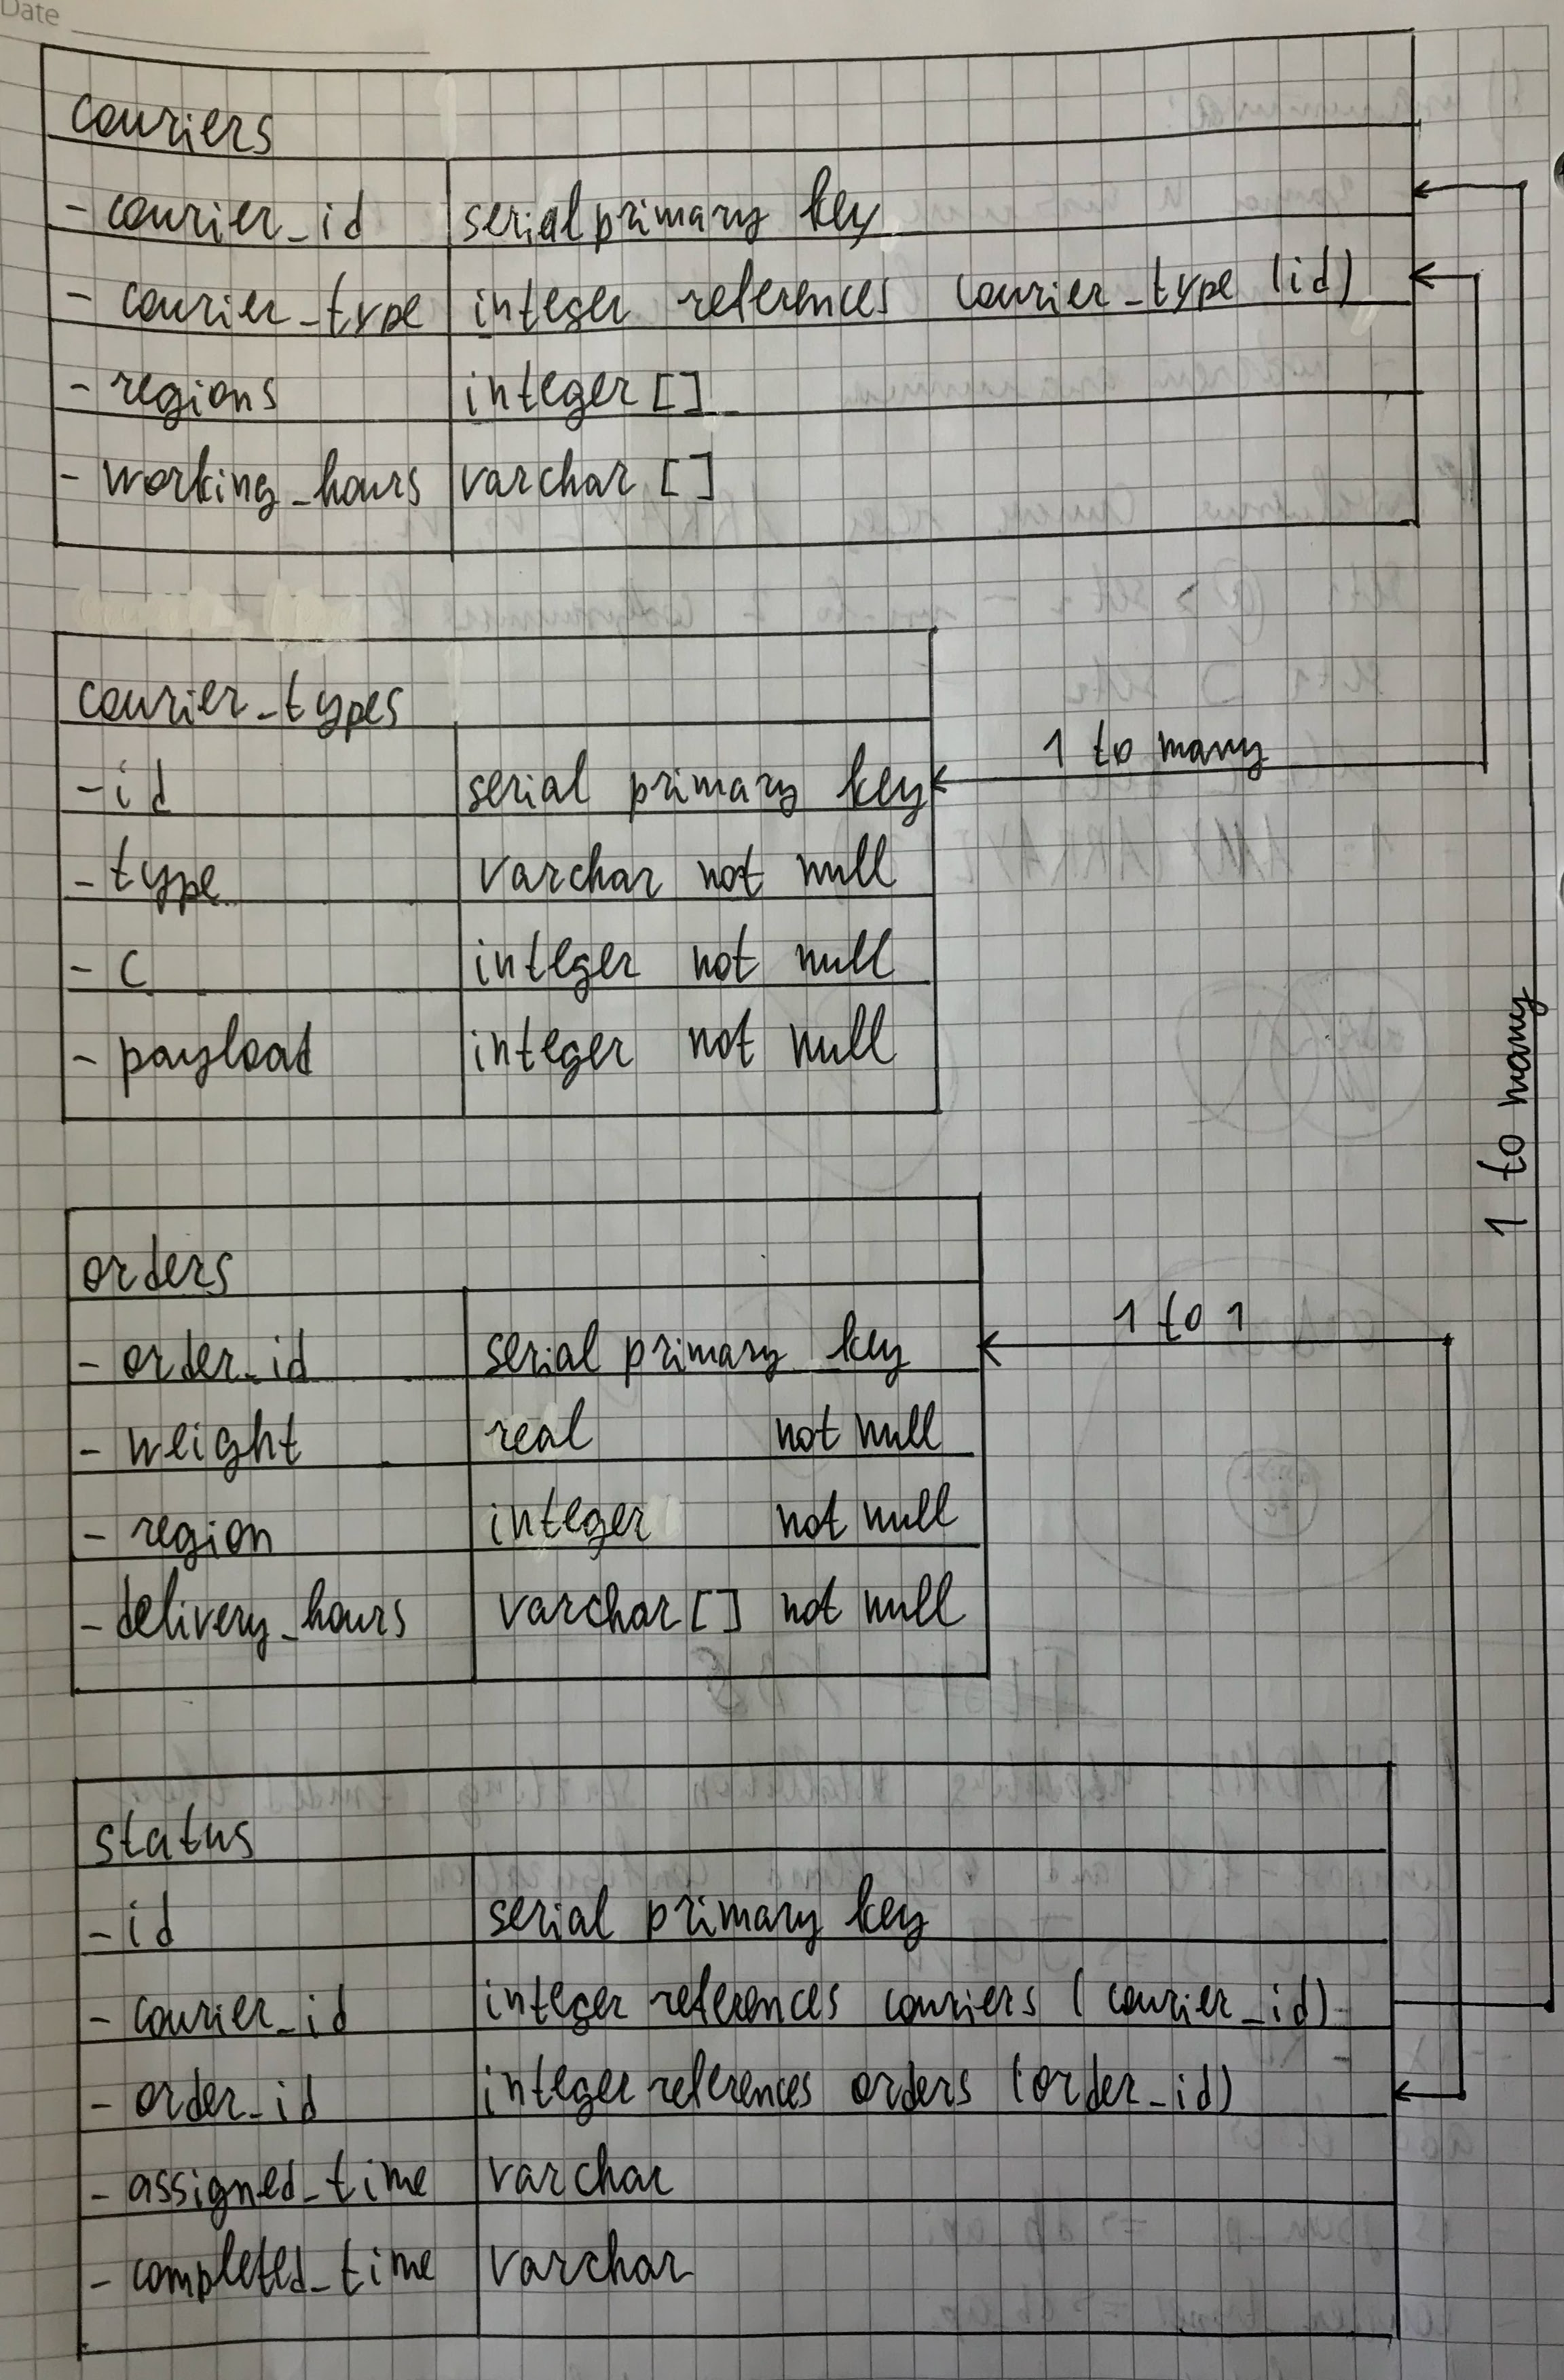 Date
couriers
- courier_id serial primary key
- courier_type integer references courier_type (id)
- regions integer []
- working_hours varchar []
courier_types
- id serial primary key
1 to many
- type varchar not null
- c integer not null
- payload integer not null
1 to many
orders
- order_id serial primary key
1 to 1
- weight real not null
- region integer not null
- delivery_hours varchar [] not null
status
- id serial primary key
- courier_id integer references couriers (courier_id)
- order_id integer references orders (order_id)
- assigned_time varchar
- completed_time varchar